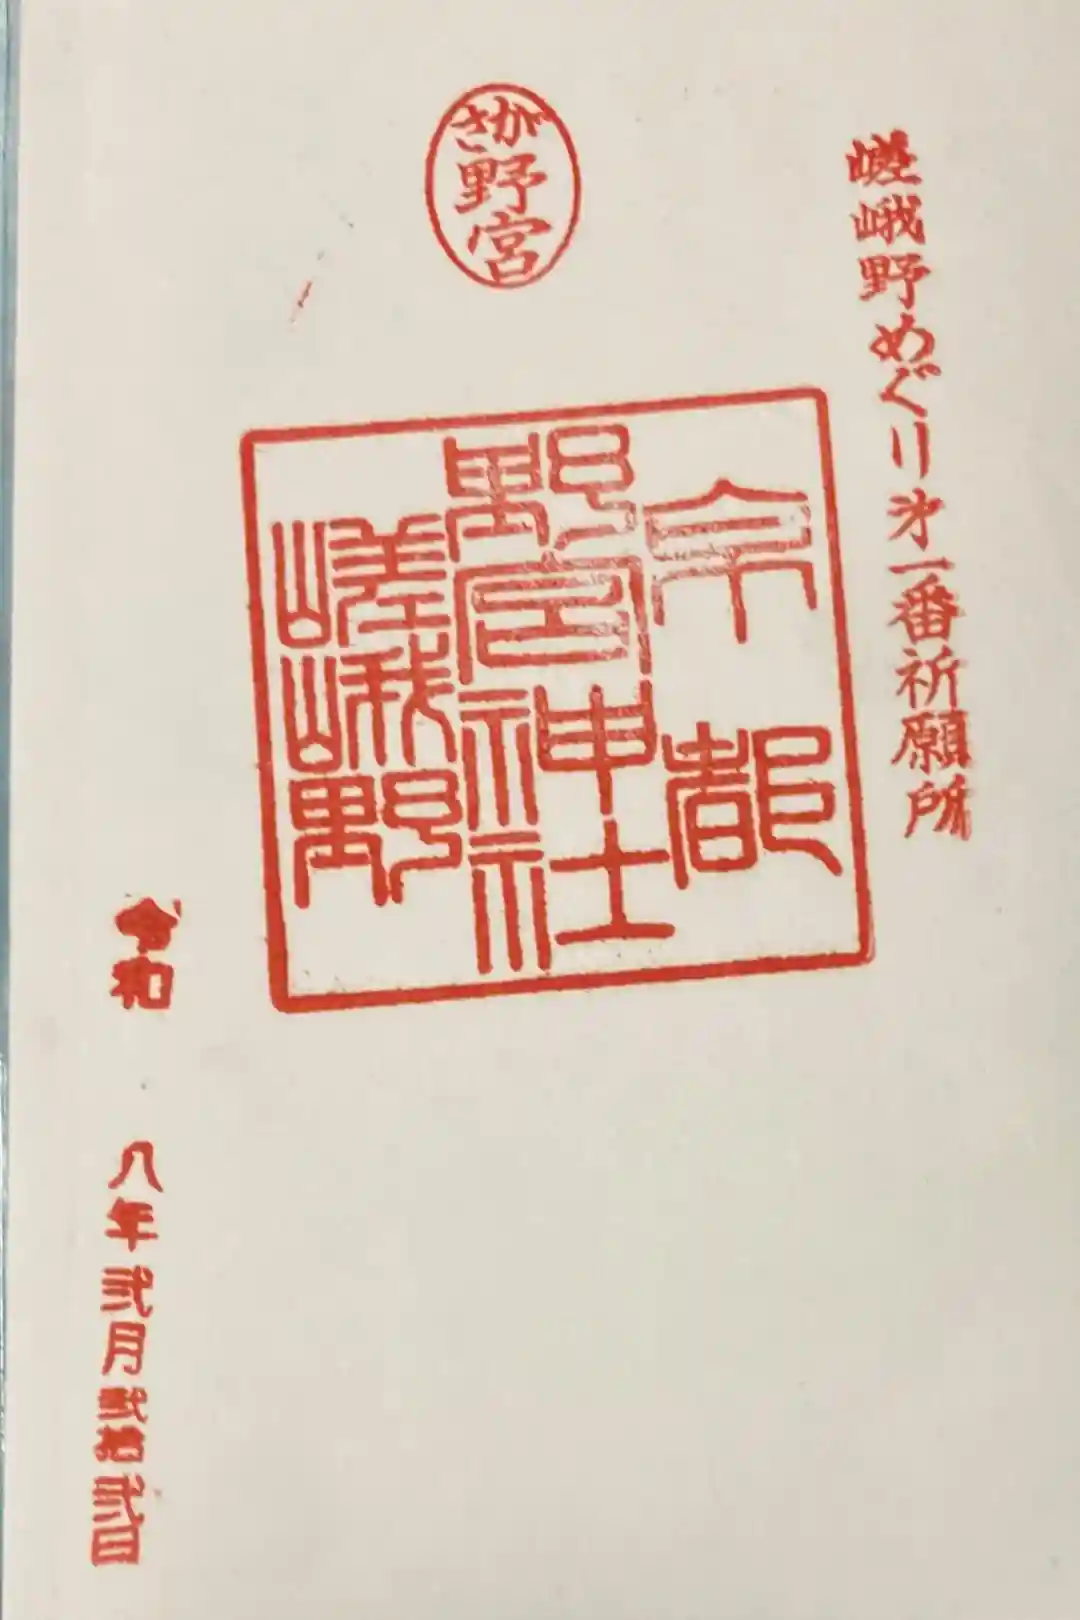 嵯峨野めぐり才一番祈願所
さが
野宮
京都
野宮神社
嵯峨野
令和
八年弐月弐拾弐日